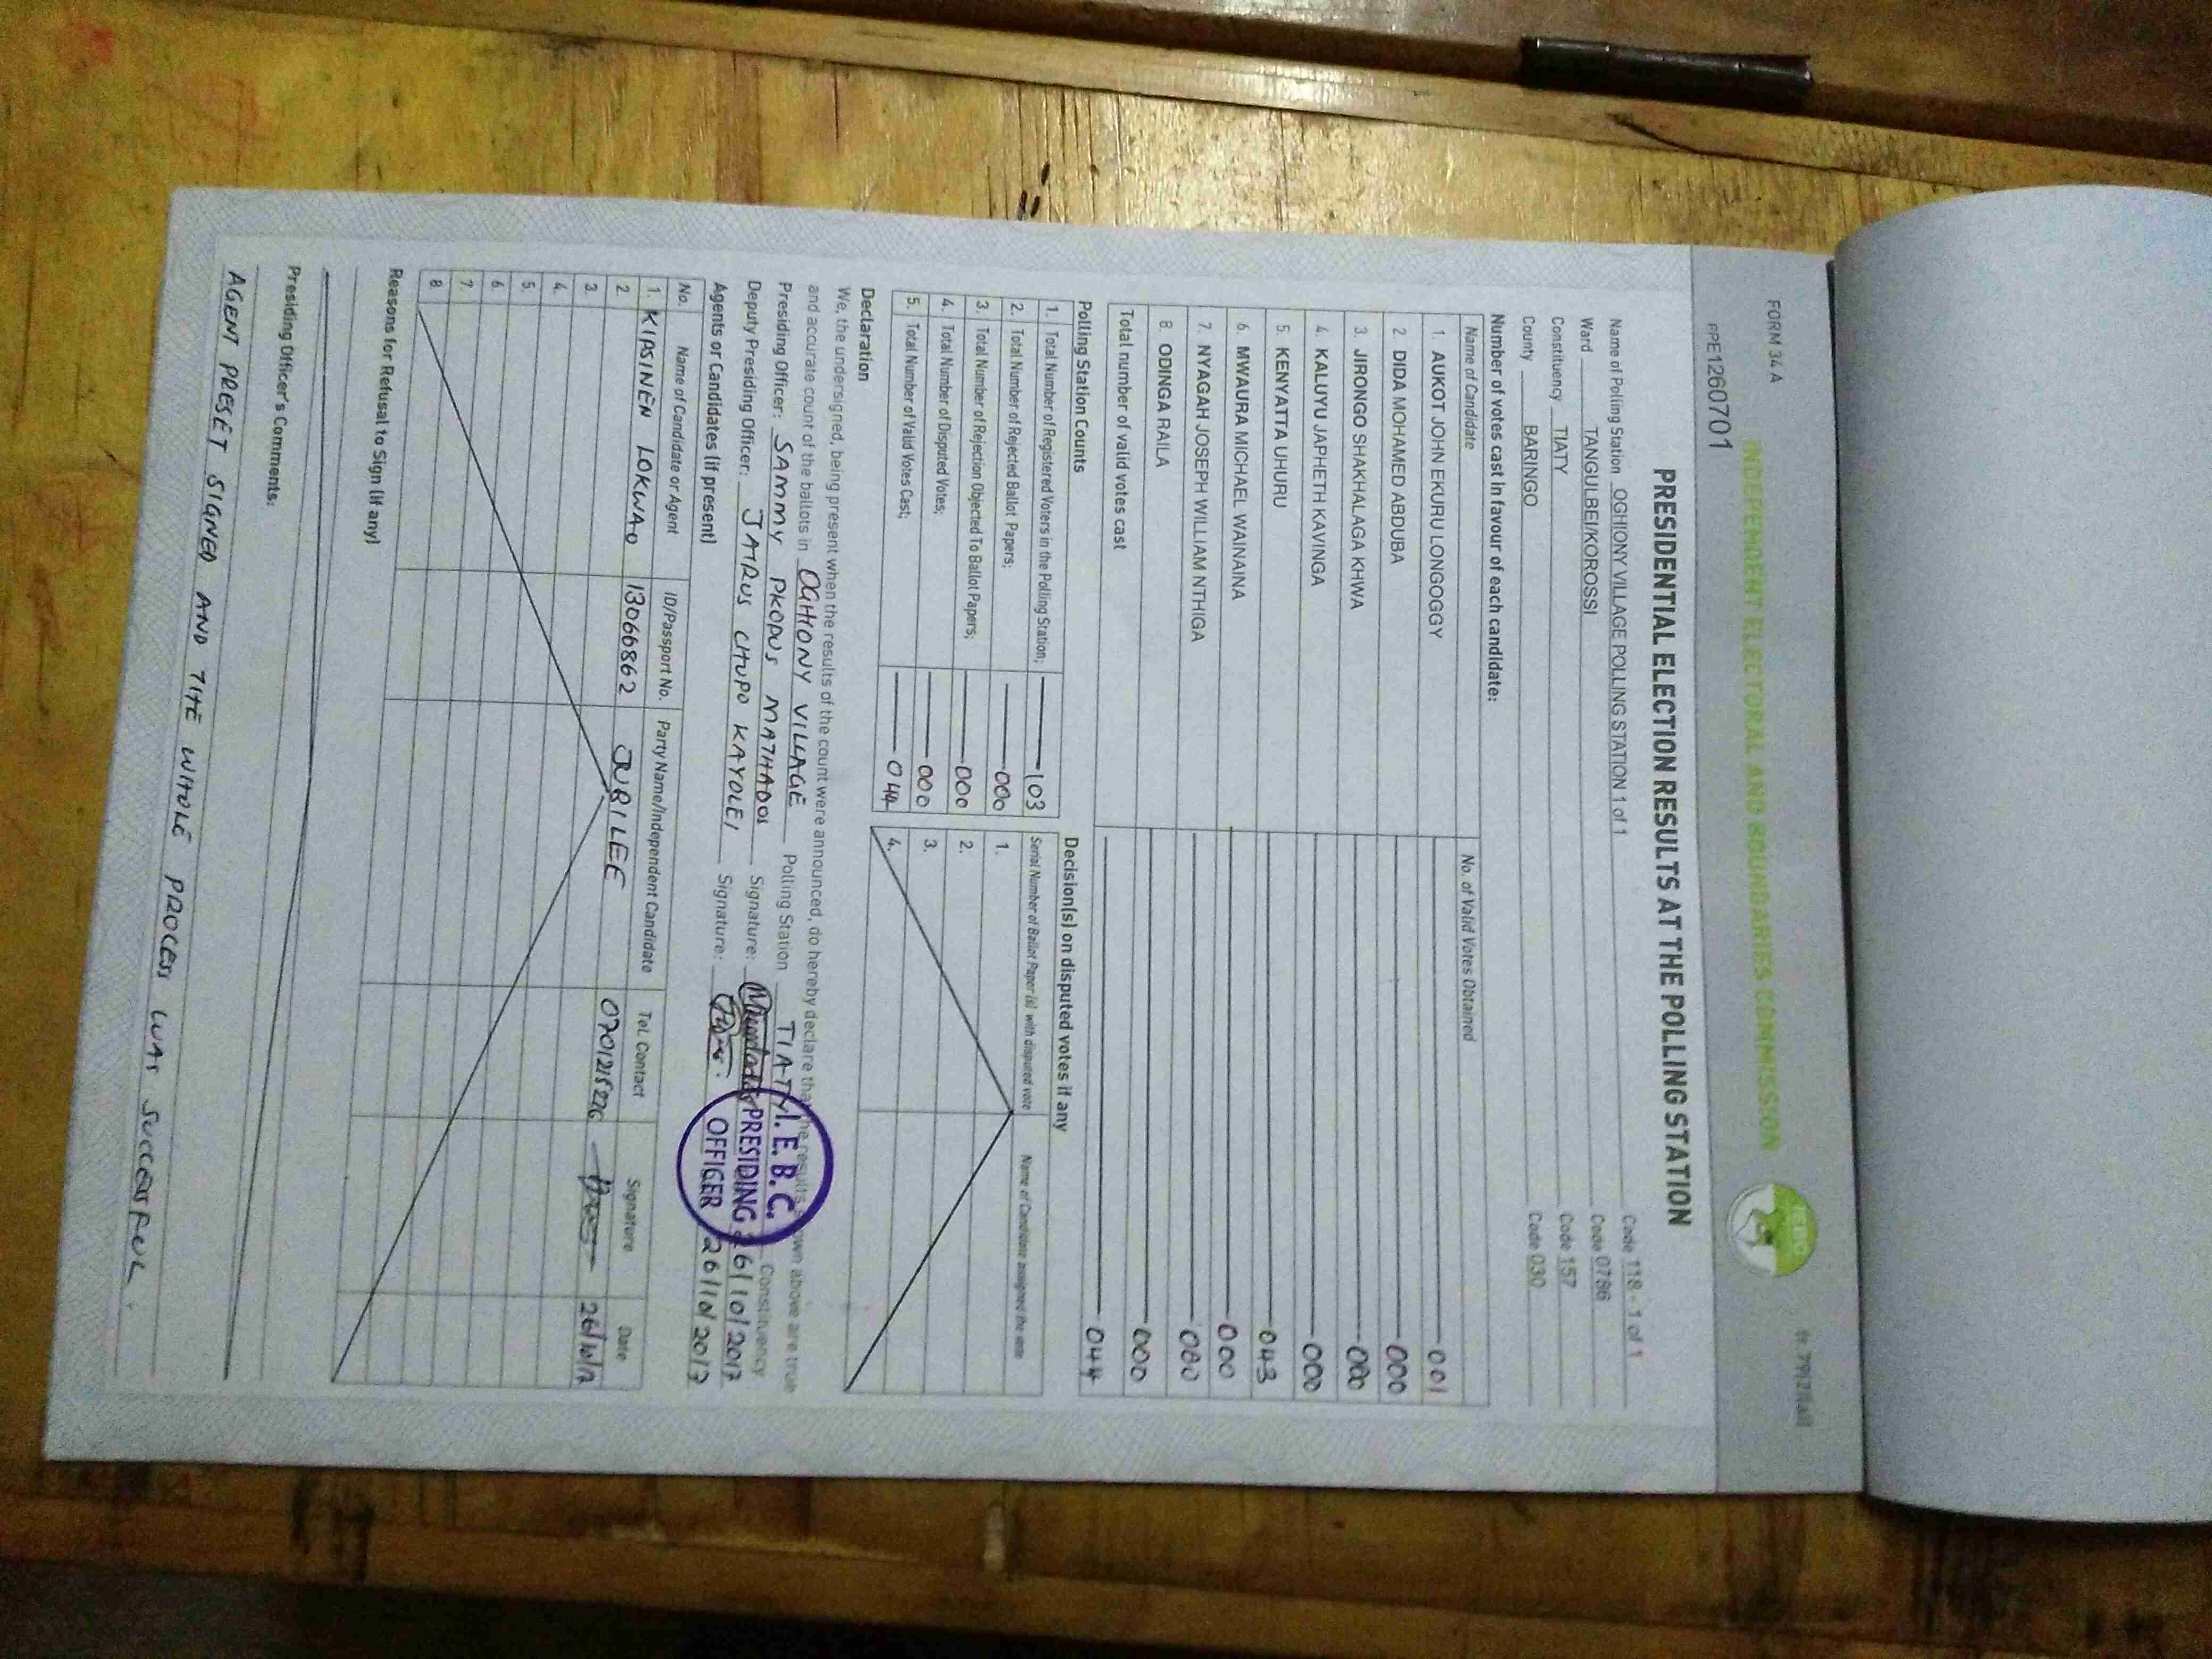 FORM 34 A
INDEPENDENT ELECTORAL AND BOUNDARIES COMMISSION
IEBC
PPE1260701
PRESIDENTIAL ELECTION RESULTS AT THE POLLING STATION
Name of Polling Station OGHIONY VILLAGE POLLING STATION 1 of 1 Code 118 - 1 of 1
Ward TANGULBEI/KOROSSI Code 0786
Constituency TIATY Code 157
County BARINGO Code 030
Number of votes cast in favour of each candidate:
Name of Candidate No. of Valid Votes Obtained
1. AUKOT JOHN EKURU LONGOGGY 001
2. DIDA MOHAMED ABDUBA 000
3. JIRONGO SHAKHALAGA KHWA 000
4. KALUYU JAPHETH KAVINGA 000
5. KENYATTA UHURU 043
6. MWAURA MICHAEL WAINAINA 000
7. NYAGAH JOSEPH WILLIAM NTHIGA 000
8. ODINGA RAILA 000
Total number of valid votes cast 044
Polling Station Counts
1. Total Number of Registered Voters in the Polling Station; 103
2. Total Number of Rejected Ballot Papers; 000
3. Total Number of Rejection Objected To Ballot Papers; 000
4. Total Number of Disputed Votes; 000
5. Total Number of Valid Votes Cast; 044
Decision(s) on disputed votes if any
Serial Number of Ballot Paper (s) with disputed vote Name of Candidate assigned the vote
1.
2.
3.
4.
Declaration
We, the undersigned, being present when the results of the count were announced, do hereby declare that the results shown above are true
and accurate count of the ballots in OGHIONY VILLAGE Polling Station TIATY Constituency
Presiding Officer: SAMMY PKOPUS Signature: 26/10/2017
Deputy Presiding Officer: JAIRUS CHUPO KAYOLEI Signature: 26/10/2017
I.E.B.C.
PRESIDING
OFFICER
Agents or Candidates (if present)
No. Name of Candidate or Agent ID/Passport No. Party Name/Independent Candidate Tel. Contact Signature Date
1. KIPSINEN LOKWAO 13066862 JUBILEE 26/10/17
2.
3.
4.
5.
6.
7.
8.
Reasons for Refusal to Sign (if any)
Presiding Officer's Comments:
AGENT PRESET SIGNED AND THE WHOLE PROCESS WAS SUCCESSFUL.